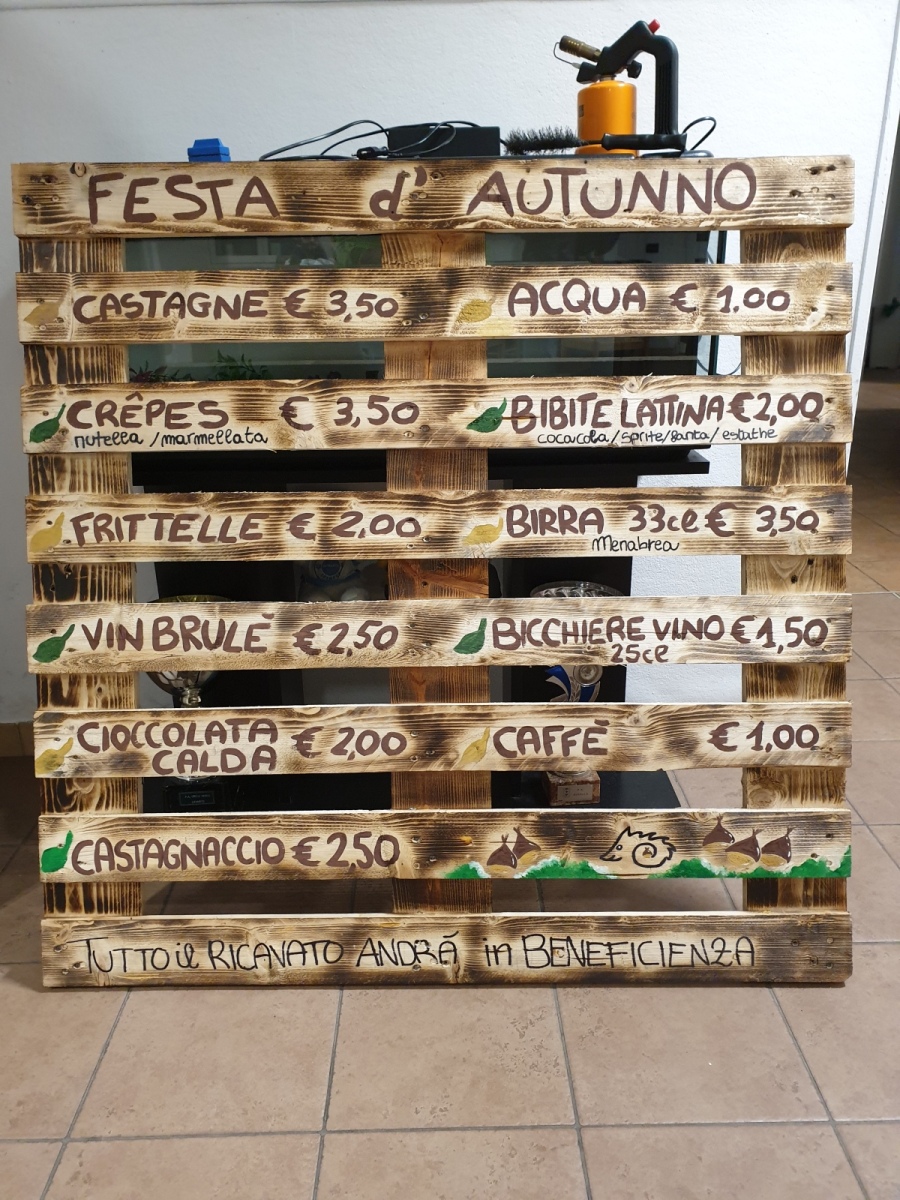 FESTA d' AUTUNNO
CASTAGNE € 3,50
ACQUA € 1.00
CRÊPES € 3,50
nutella /marmellata
BIBITE LATTINA €2,00
cocacola/sprite/fanta/estathe
FRITTELLE € 2,00
BIRRA 33cl € 3,50
Menabrea
VIN BRULÈ €2,50
BICCHIERE VINO €1,50
25cl
CIOCCOLATA
CALDA € 2,00
CAFFÈ € 1,00
CASTAGNACCIO € 2,50
TUTTO il RICAVATO ANDRÀ in BENEFICIENZA